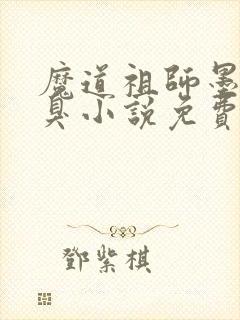 魔道祖師墨
臭小說免費
鄧紫棋